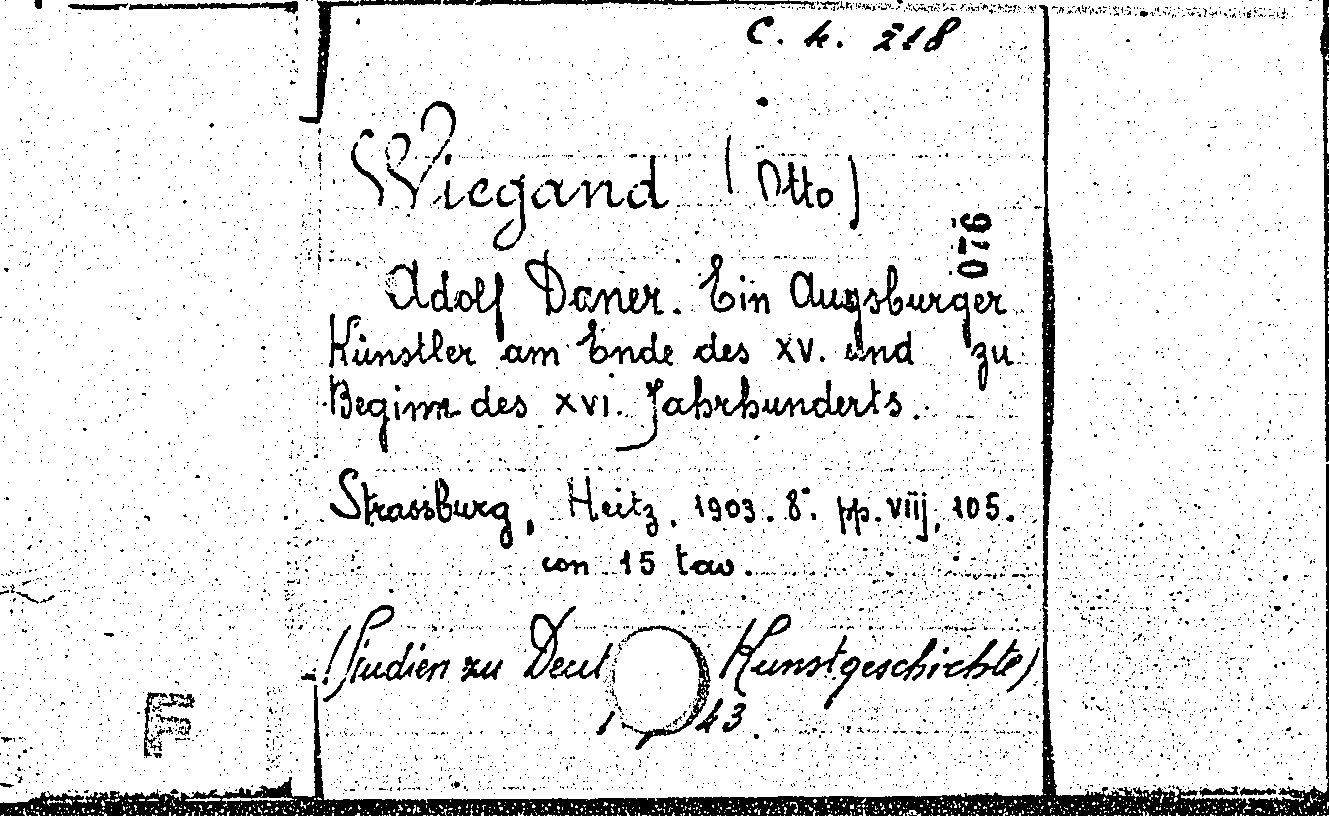 C. h. 218
Wiegand (Otto)
076
Adolf Daner. Ein Augsburger
Künstler am Ende des XV. und zu
Beginn des XVI. Jahrhunderts.
Strassburg, Heitz, 1903. 8°. pp. viij, 105.
con 15 tav.
(Studien zu Deut Kunstgeschichte)
43.
F